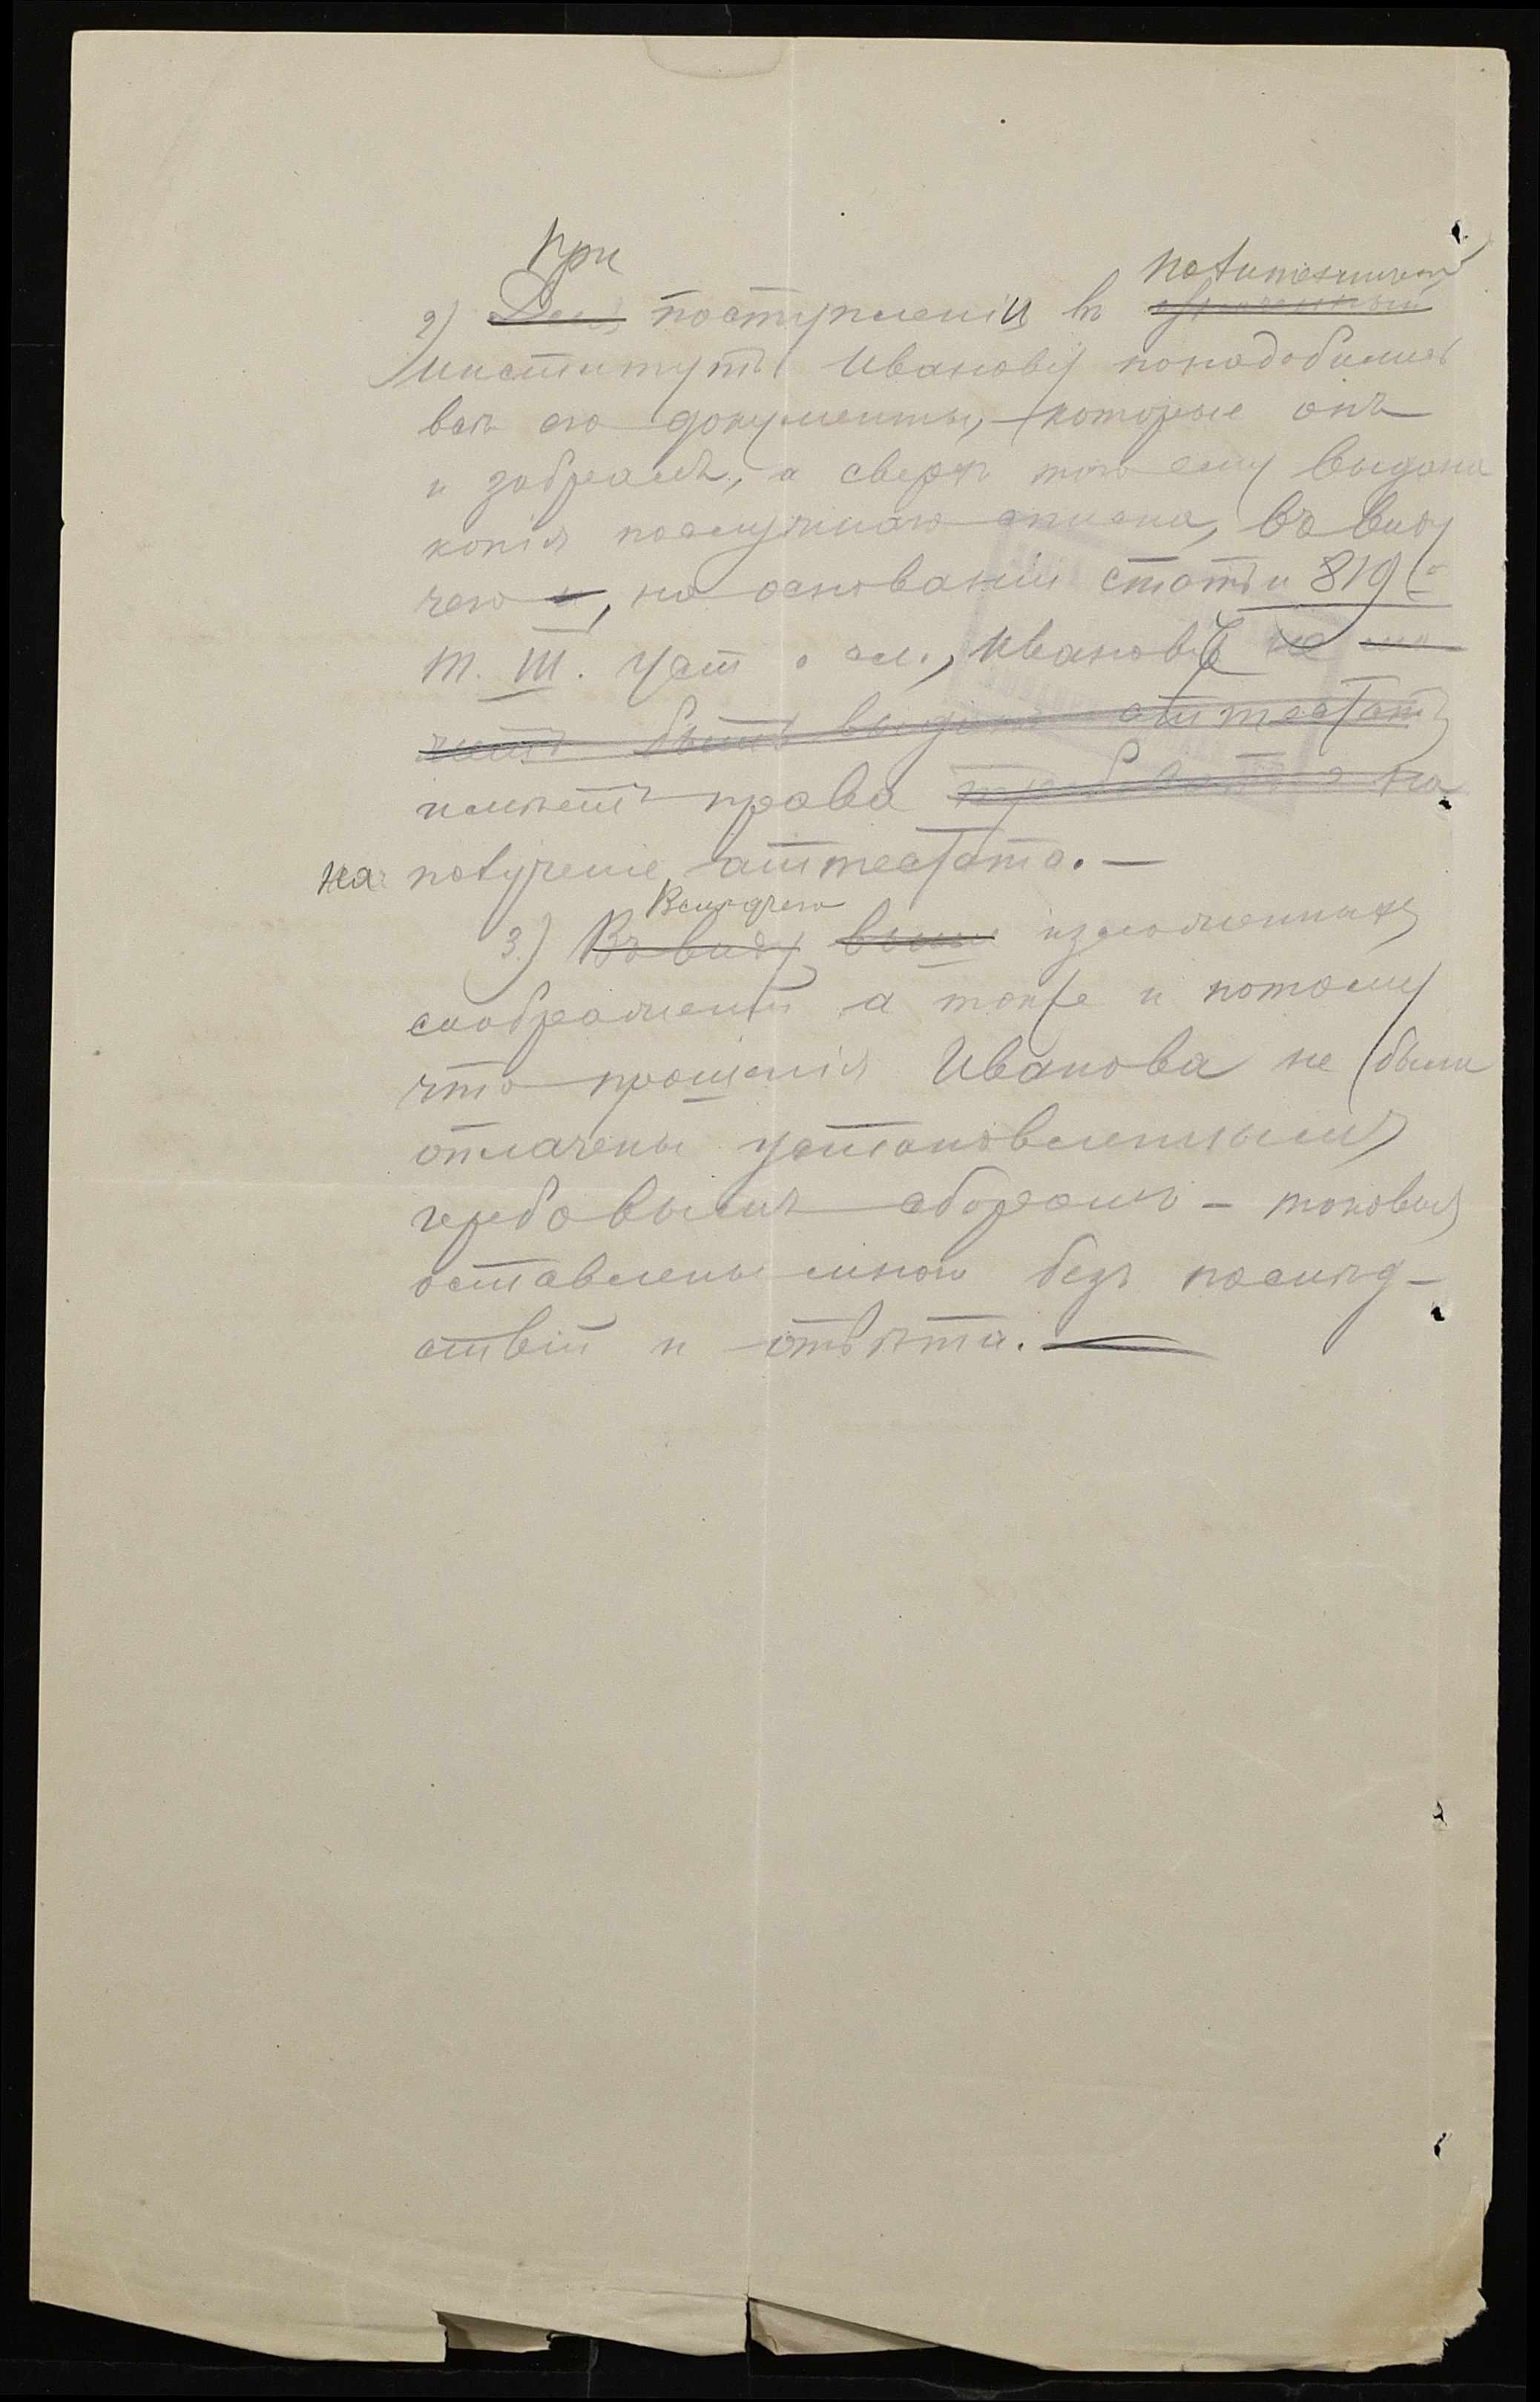 При
2) Для поступленіи въ политехническій
институтъ Иванову понадобились
всѣ его документы, которые онъ
и забралъ, а сверхъ того ему выдана
копія послужнаго списка, въ виду
чего и, на основаніи статьи 819
т. III. Уст о сл., Ивановъ не мо
жетъ быть выданъ аттестатъ
имѣетъ права требовать на
на полученіе аттестата. —
Вслѣдствіе
3) Въ виду выше изложенныхъ
соображеній а также и потому
что прошенія Иванова не были
оплачены установленнымъ
гербовымъ сборомъ – таковыя
оставлены мною безъ послѣд–
ствій и отвѣта. —